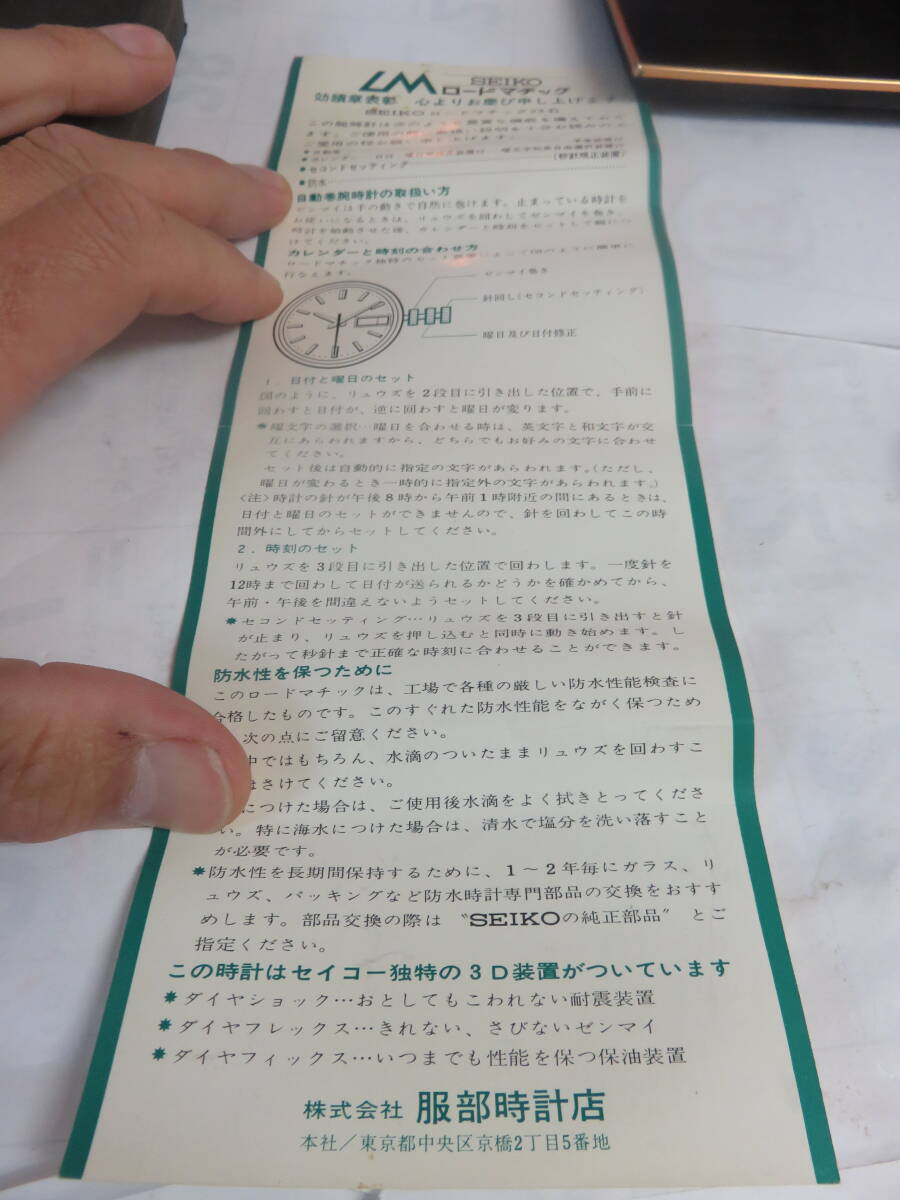 LM SEIKO
ロードマチック
効績章表彰 心よりお慶び申し上げます
SEIKO ロードマチック
この腕時計は次のような
ます。ご使用の前に
ご愛用の程お願い申し上げます。
＊カレンダー
＊セコンドセッティング (秒針規正装置)
＊防水
自動巻腕時計の取扱い方
ゼンマイは手の動きで自然に巻けます。止まっている時計を
お使いになるときは、リュウズを回わしてゼンマイを巻き、
時計を始動させた後、カレンダーと時刻をセットして腕につ
けてください。
カレンダーと時刻の合わせ方
ロードマチック独特のセット装置によって図のように簡単に
行なえます。
ゼンマイ巻き
針回し(セコンドセッティング)
曜日及び日付修正
1．日付と曜日のセット
図のように、リュウズを2段目に引き出した位置で、手前に
回わすと日付が、逆に回わすと曜日が変ります。
＊曜文字の選択…曜日を合わせる時は、英文字と和文字が交
互にあらわれますから、どちらでもお好みの文字に合わせ
てください。
セット後は自動的に指定の文字があらわれます。(ただし、
曜日が変わるとき一時的に指定外の文字があらわれます。)
〈注〉時計の針が午後8時から午前1時附近の間にあるときは、
日付と曜日のセットができませんので、針を回わしてこの時
間外にしてからセットしてください。
2．時刻のセット
リュウズを3段目に引き出した位置で回わします。一度針を
12時まで回わして日付が送られるかどうかを確かめてから、
午前・午後を間違えないようセットしてください。
＊セコンドセッティング…リュウズを3段目に引き出すと針
が止まり、リュウズを押し込むと同時に動き始めます。し
たがって秒針まで正確な時刻に合わせることができます。
防水性を保つために
このロードマチックは、工場で各種の厳しい防水性能検査に
合格したものです。このすぐれた防水性能をながく保つため
次の点にご留意ください。
中ではもちろん、水滴のついたままリュウズを回わすこ
はさけてください。
につけた場合は、ご使用後水滴をよく拭きとってくださ
い。特に海水につけた場合は、清水で塩分を洗い落すこと
が必要です。
＊防水性を長期間保持するために、1～2年毎にガラス、リ
ュウズ、パッキングなど防水時計専門部品の交換をおすす
めします。部品交換の際は〝SEIKOの純正部品〟とご
指定ください。
この時計はセイコー独特の3D装置がついています
＊ダイヤショック…おとしてもこわれない耐震装置
＊ダイヤフレックス…きれない、さびないゼンマイ
＊ダイヤフィックス…いつまでも性能を保つ保油装置
株式会社 服部時計店
本社／東京都中央区京橋2丁目5番地